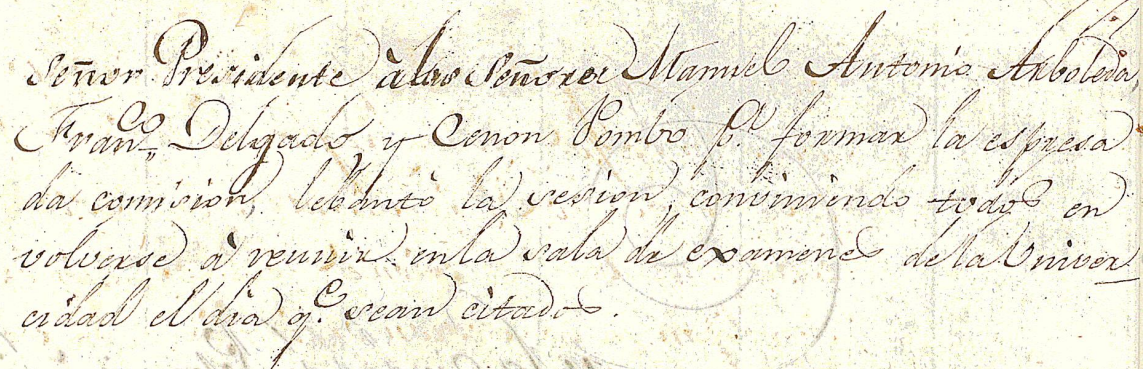 señor Presidente à los señores Manuel Antonio Arboleda,
Fran.co Delgado y Cenon Pombo p.a formar la espresa
da comision, lebantó la sesion, conviniendo todos en
volverse à reunir en la sala de examenes de la Univer
cidad el dia q.e sean citados.